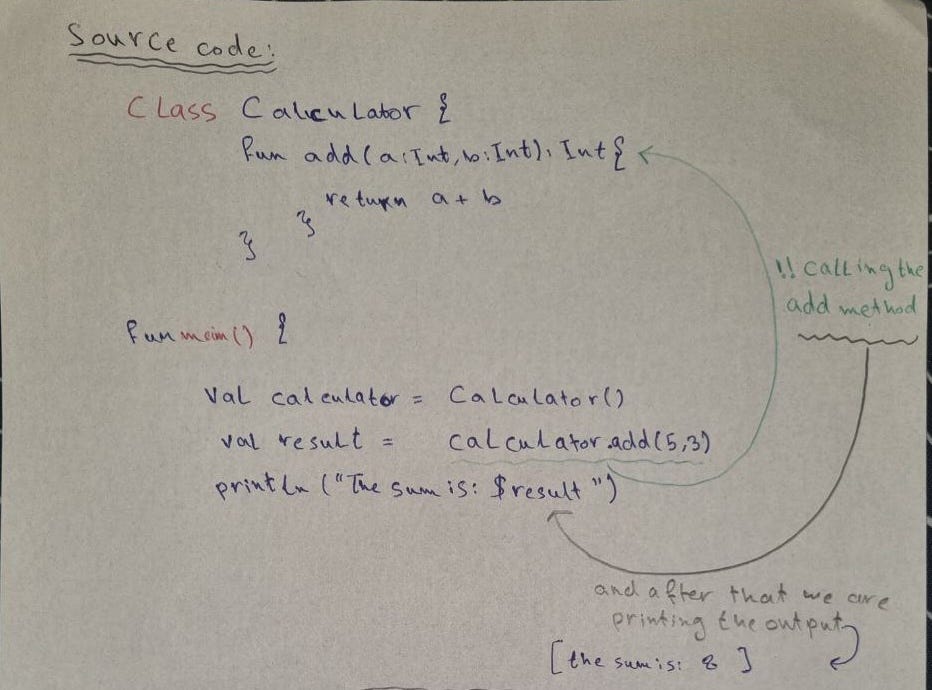 Source code:
Class Calculator {
fun add(a:Int, b:Int): Int {
return a + b
}
}
!! calling the
add method
fun main() {
val calculator = Calculator()
val result = calculator.add(5,3)
println ("The sum is: $result")
and after that we are
printing the output
[the sum is: 8 ]